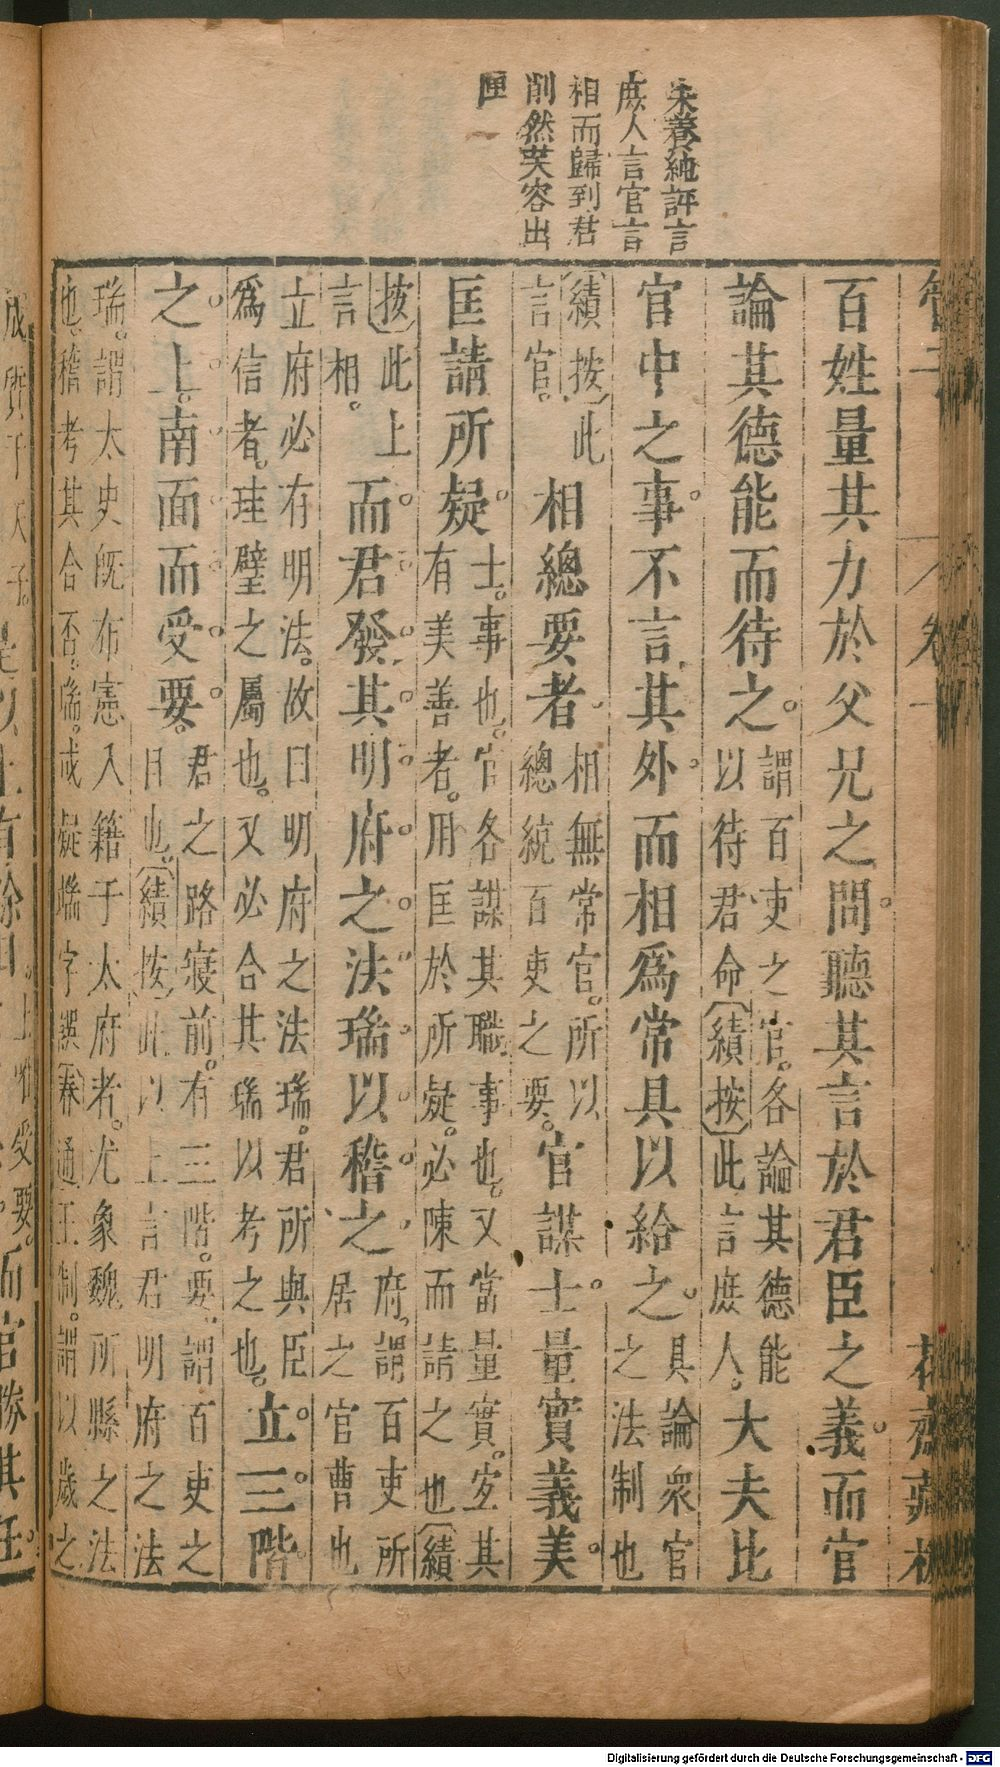 朱養純評言
庶人言官言
相而歸到君
削然芙容出
匣
管子
卷十
花齋藏板
百姓量其力於父兄之間。聽其言於君臣之義。而官
論其德能而待之。謂百吏之官。各論其德能以待君命(績按)此言庶人。大夫比
官中之事。不言其外。而相爲常具以給之。具論衆官之法制也
(績按)此言官。相總要者。相無常官。所以總統百吏之要。官謀士。量實義美。
匡請所疑。士。事也。官各謀其職事也。又當量實。宻其有美善者。用匡於所疑。必陳而請之也(績
按)此上言相。而君發其明府之法瑞以稽之。府。謂百吏所居之官曹也
立府必有明法。故曰明府之法瑞。君所與臣爲信者。珪璧之屬也。又必合其瑞以考之也。立三階
之上。南面而受要。君之路寢前。有三階。要。謂百吏之目也。(績按)此以上言君明府之法
瑞。謂太史旣布憲入籍于太府者。尤象魏所縣之法也。稽考其合否。瑞。或疑端字誤(春)通王制。謂以歲之
成質于天子。
上始受要。
而官勝其任。
Digitalisierung gefördert durch die Deutsche Forschungsgemeinschaft - DFG